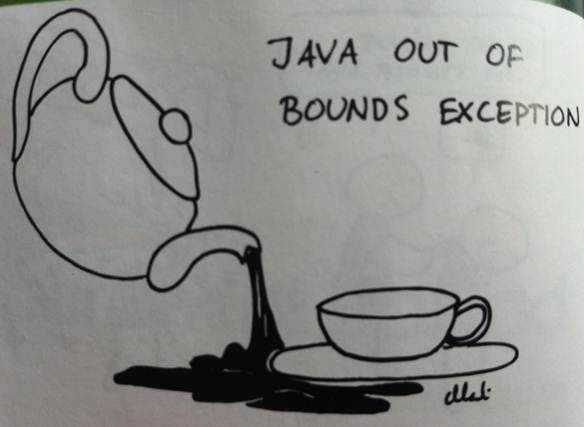 JAVA OUT OF
BOUNDS EXCEPTION